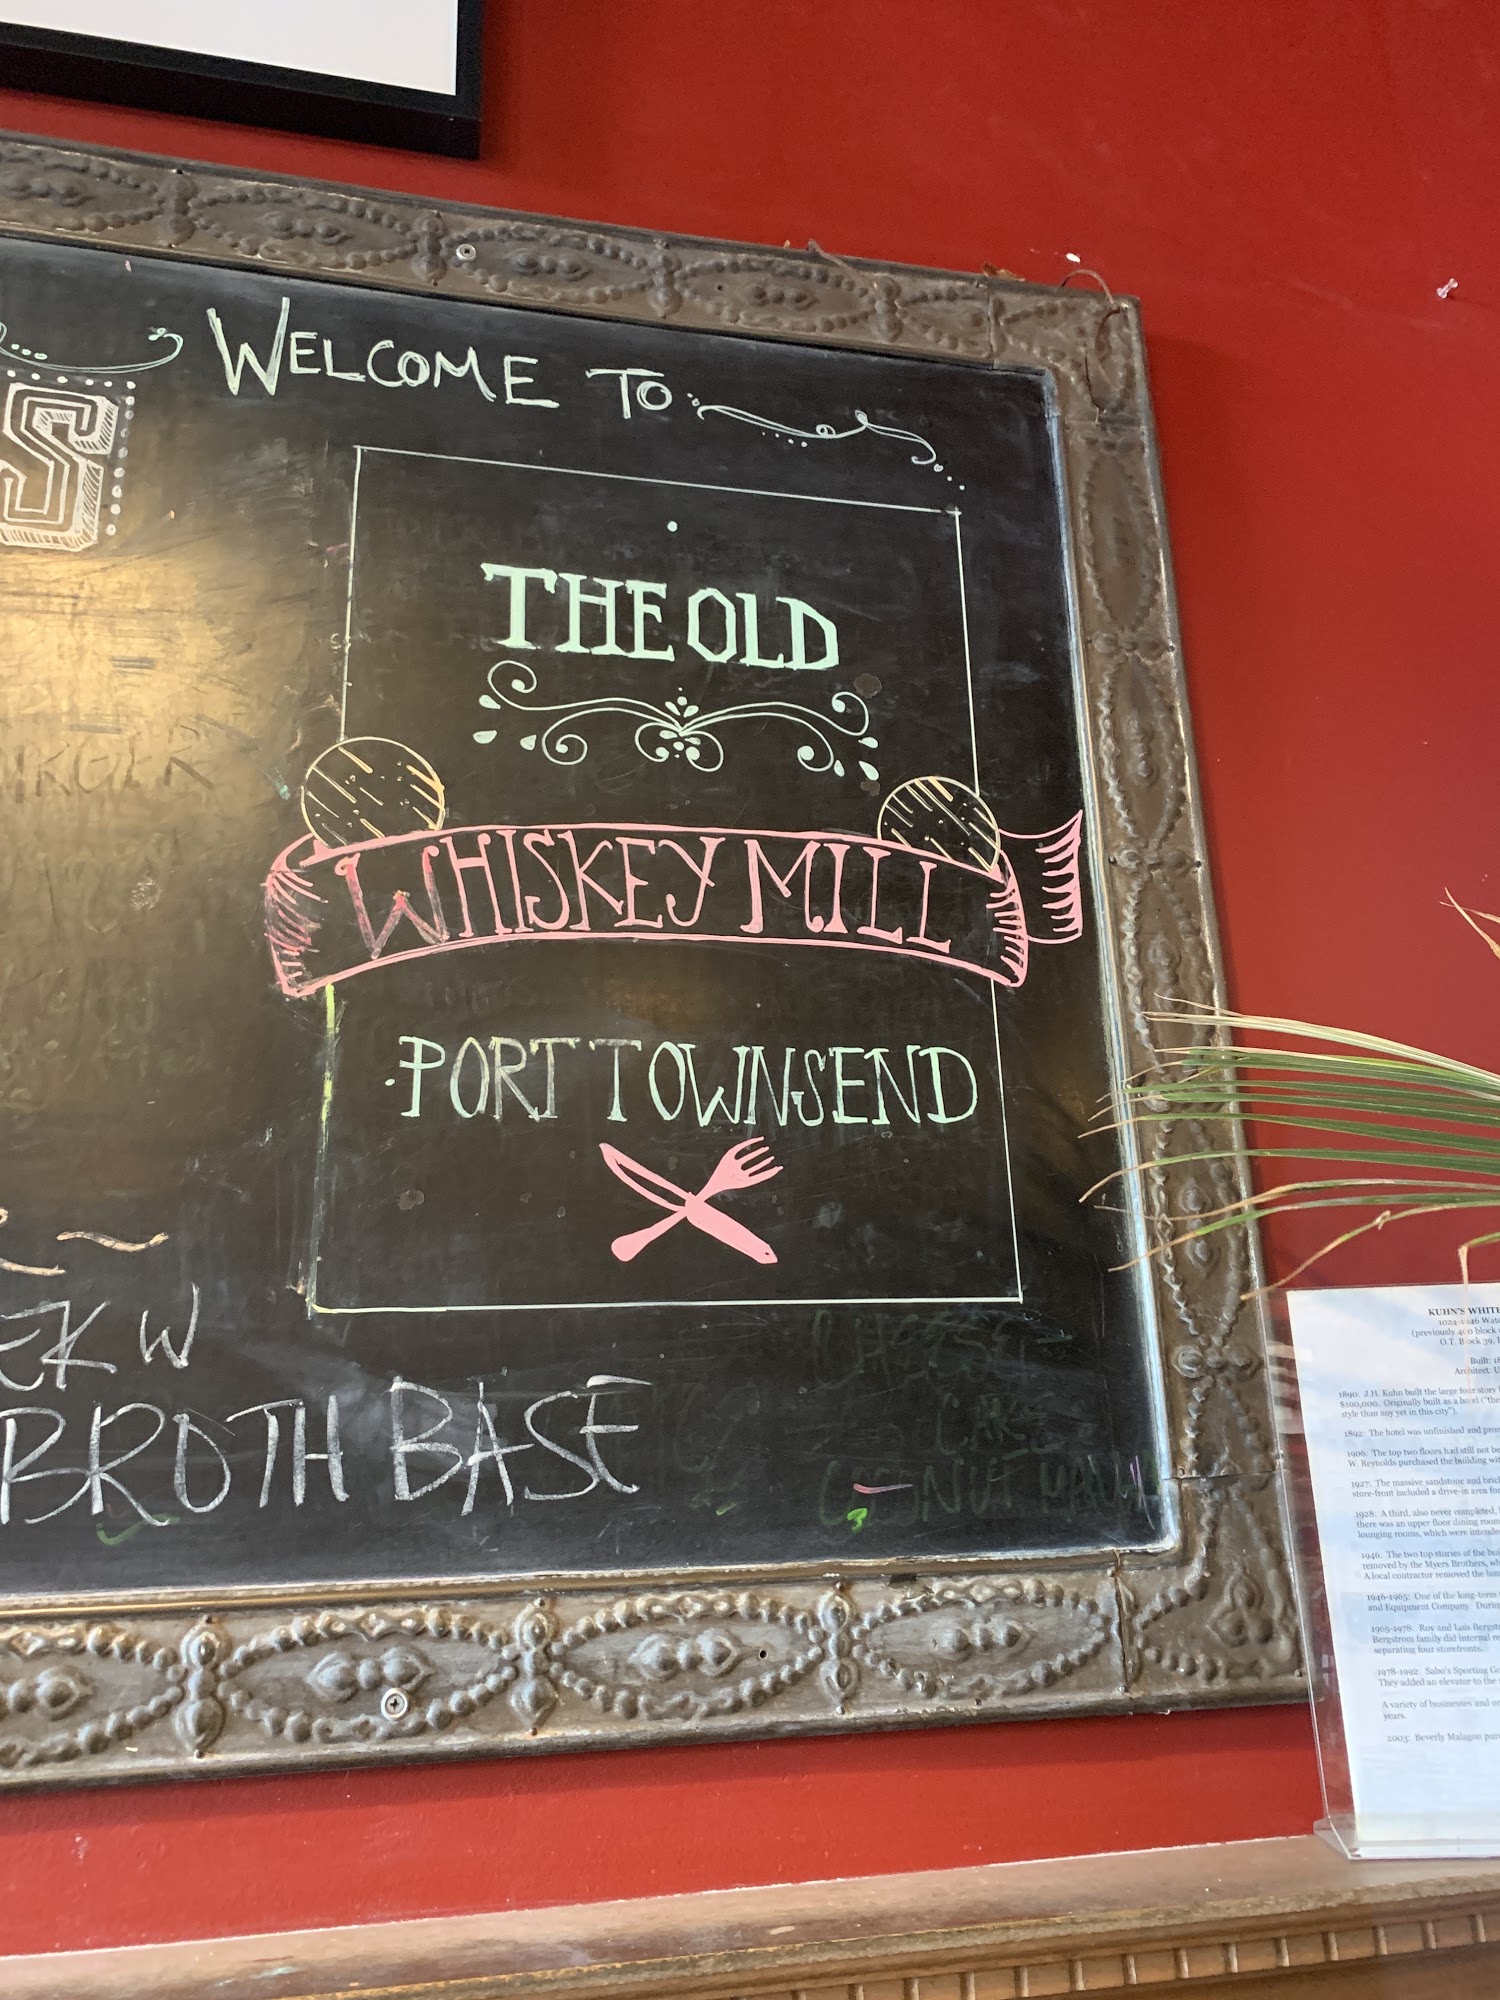 WELCOME TO
S
THE OLD
WHISKEY MILL
PORT TOWNSEND
EEK W
BROTH BASE
CHEESE
CAKE
COCONUT
KUHN'S WHITE
(previously 400 block
O.T. Block 39,
Built: 18
Architect: U
1890: J.H. Kuhn built the large four story
$100,000. Originally built as a hotel ("the
style than any yet in this city").
1892: The hotel was unfinished and
1906: The top two floors had still not be
W. Reynolds purchased the building
1927: The massive sandstone and brick
store-front included a drive-in area for
1928: A third, also never completed,
there was an upper floor dining room
lounging rooms, which were intended
1946: The two top stories of the
removed by the Myers Brothers,
A local contractor removed the
1946-1965: One of the long-term
and Equipment Company. During
1965-1978: Roy and Lois Bergstr
Bergstrom family did internal re
separating four storefronts.
1978-1992: Sabo's Sporting Go
They added an elevator to the
A variety of businesses and
years.
2003: Beverly Malagon pur